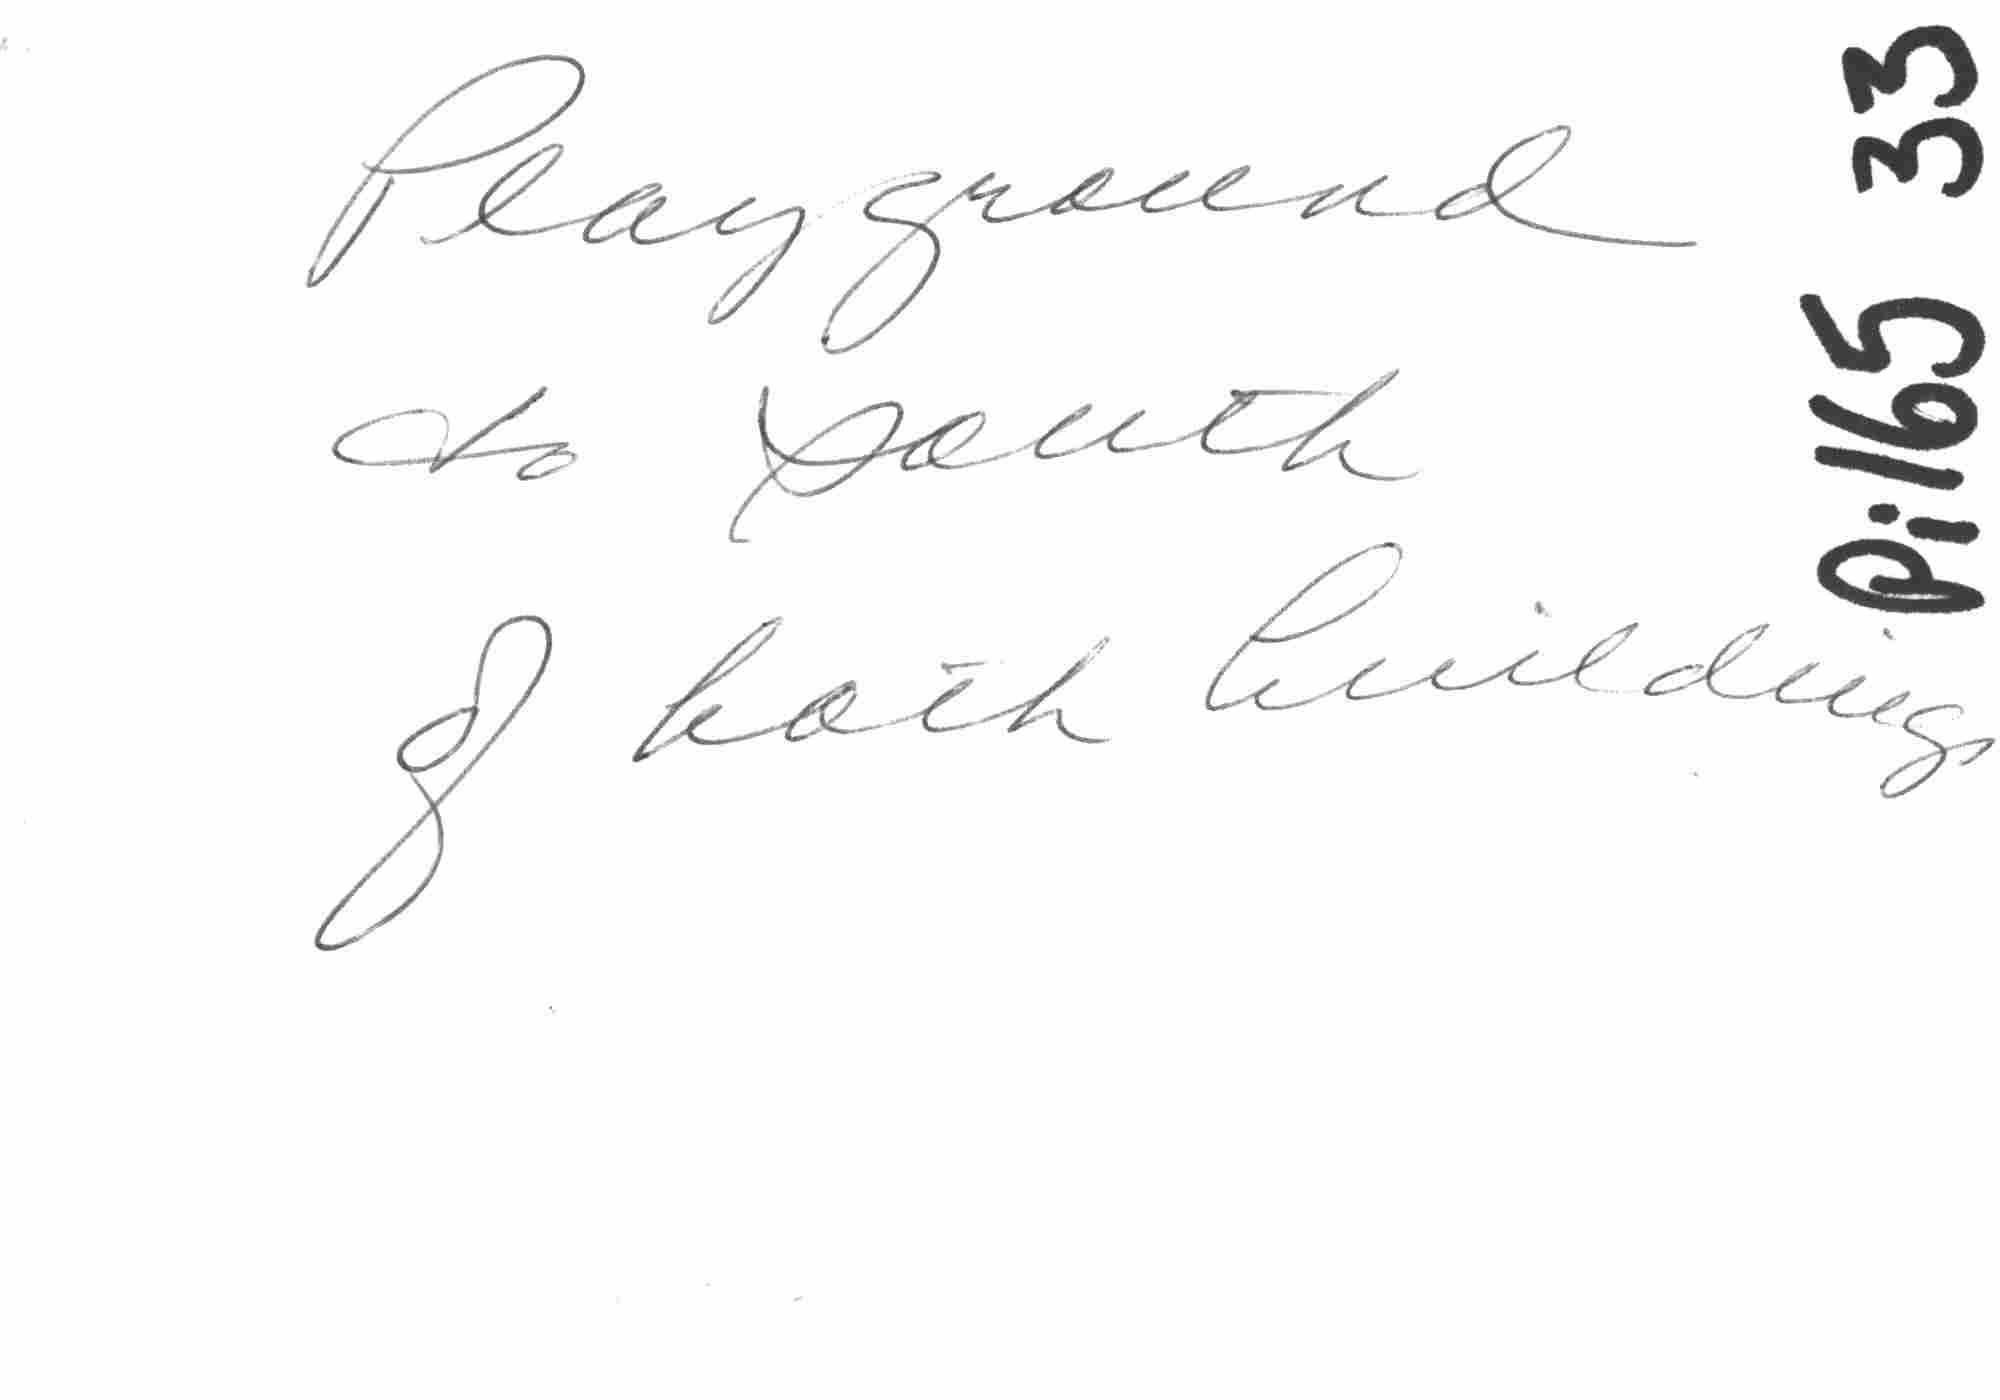 Playground
to South
of both buildings
Pi 165 33